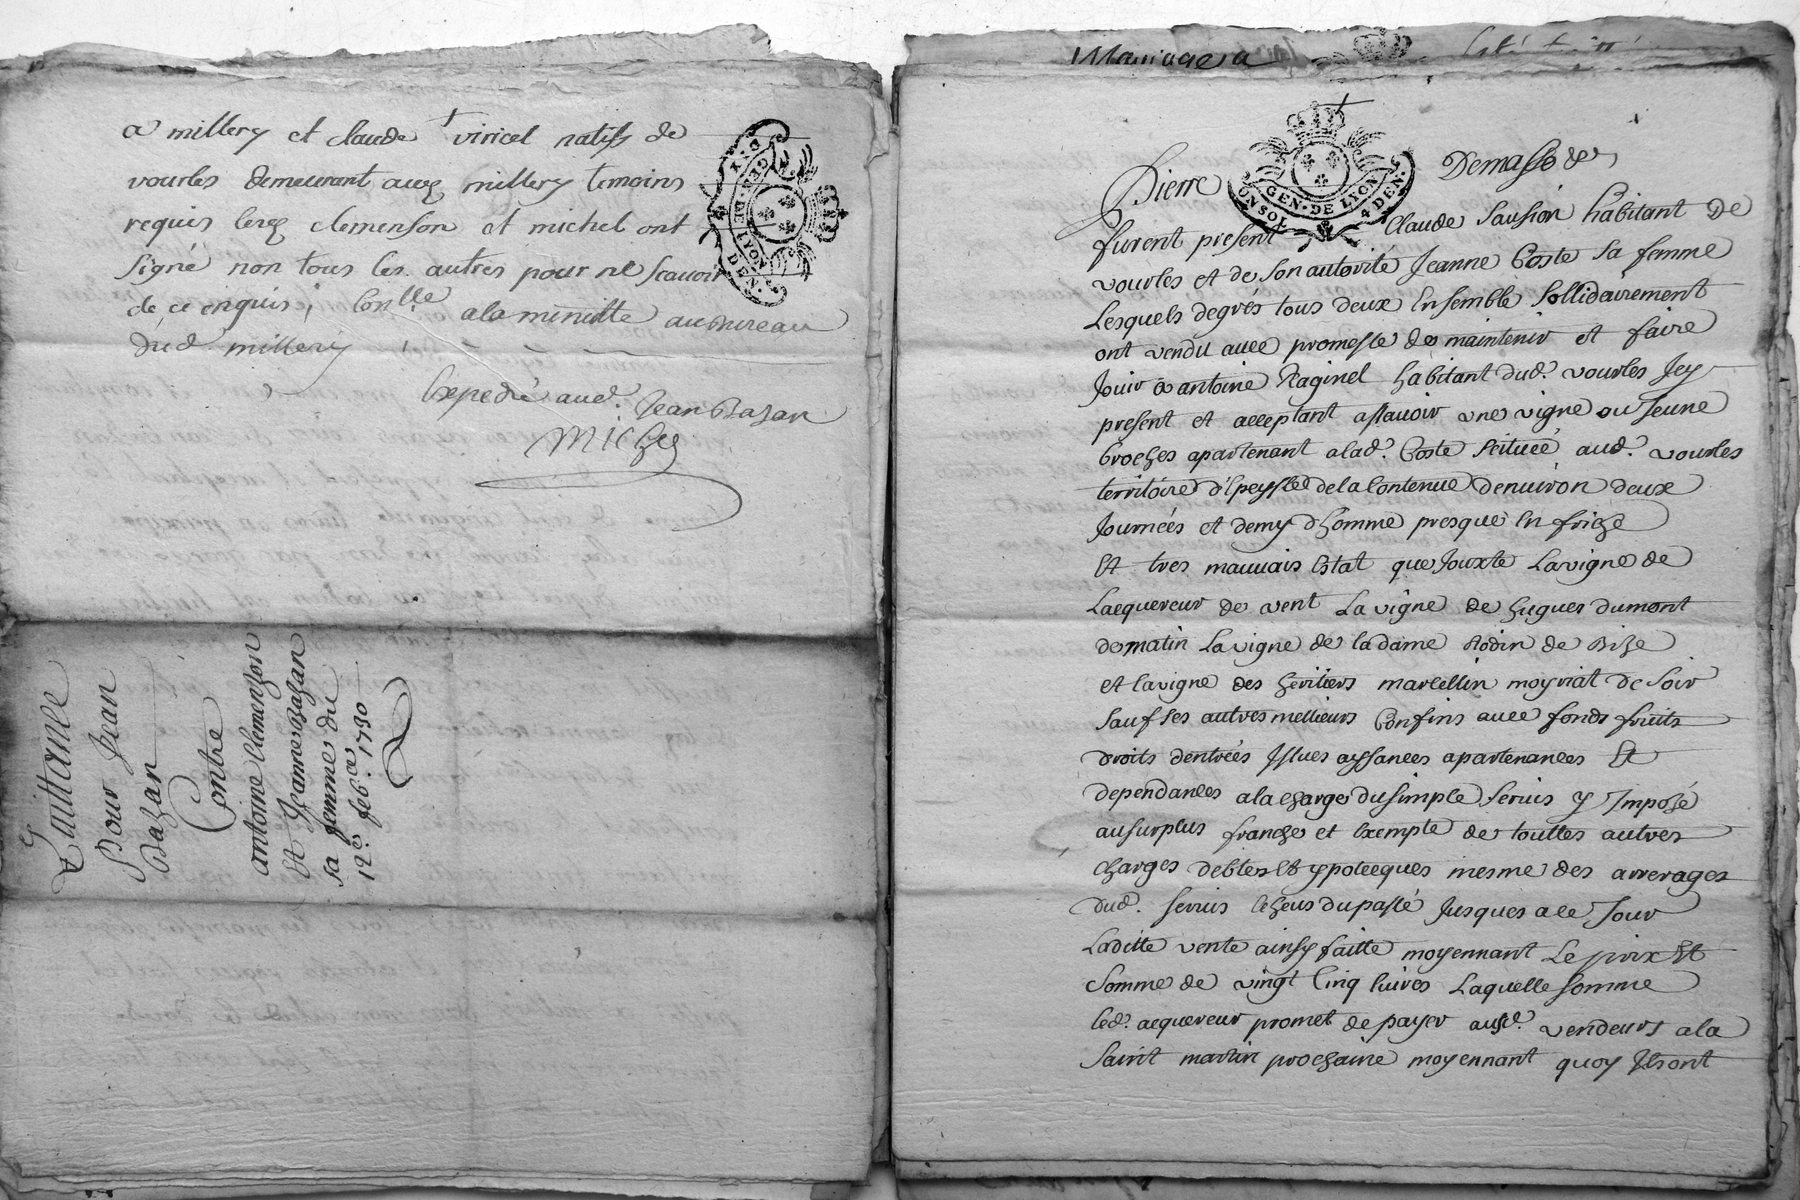 a millery et claude viricel natifs de
vourles demeurant aud millery temoins
requis lesd clemenson et michel ont
signé non tous les autres pour ne scavoir
de ce enquis; Con.lle a la minutte au bureau
dud. millery
Expedié aud. Jean Bazan
Michel
GEN. DE LYON
DEN.
Quittance
Pour Jean
Bazan
Contre
antoine Clemenson
Et Jeanne Bazan
sa femme du
12e feb.er 1730
Mariage a
GEN. DE LYON
ON SOL 4 DEN.
Pierre Demasso &
furent present Claude Sausion habitant de
vourles et de son autorité Jeanne Coste sa femme
Lesquels degrés tous deux Ensemble Sollidairement
ont vendu avec promesse de maintenir et faire
Jouir a antoine Raginel habitant dud. vourles Jcy
present et acceptant assavoir une vigne ou Jeune
broches apartenant a lad. Coste scituée aud. vourles
territoire d'Epeysse de la Contenue denuiron deux
Journées et demy d'homme presque En friche
Et tres mauvais Estat que Jouxte La vigne de
Lacquereur de vent La vigne de hugues dumont
de matin La vigne de la dame Rodin de Bize
et la vigne des heritiers marcellin moyriat de Soir
Sauf ses autres mellieurs Confins avec fonds fruits
droits d'entrées Issues aysances apartenances Et
dependances a la charge du simple Servis y Imposé
au surplus franche et Exempte de touttes autres
charges debtes Et ypotecques mesme des arrerages
dud. Servis Echeus du passé Jusques a ce Jour
Laditte vente ainsy faitte moyennant Le prix Et
Somme de vingt Cinq livres Laquelle Somme
led. acquereur promet de payer ausd. vendeurs a la
Saint martin prochaine moyennant quoy Ils ont